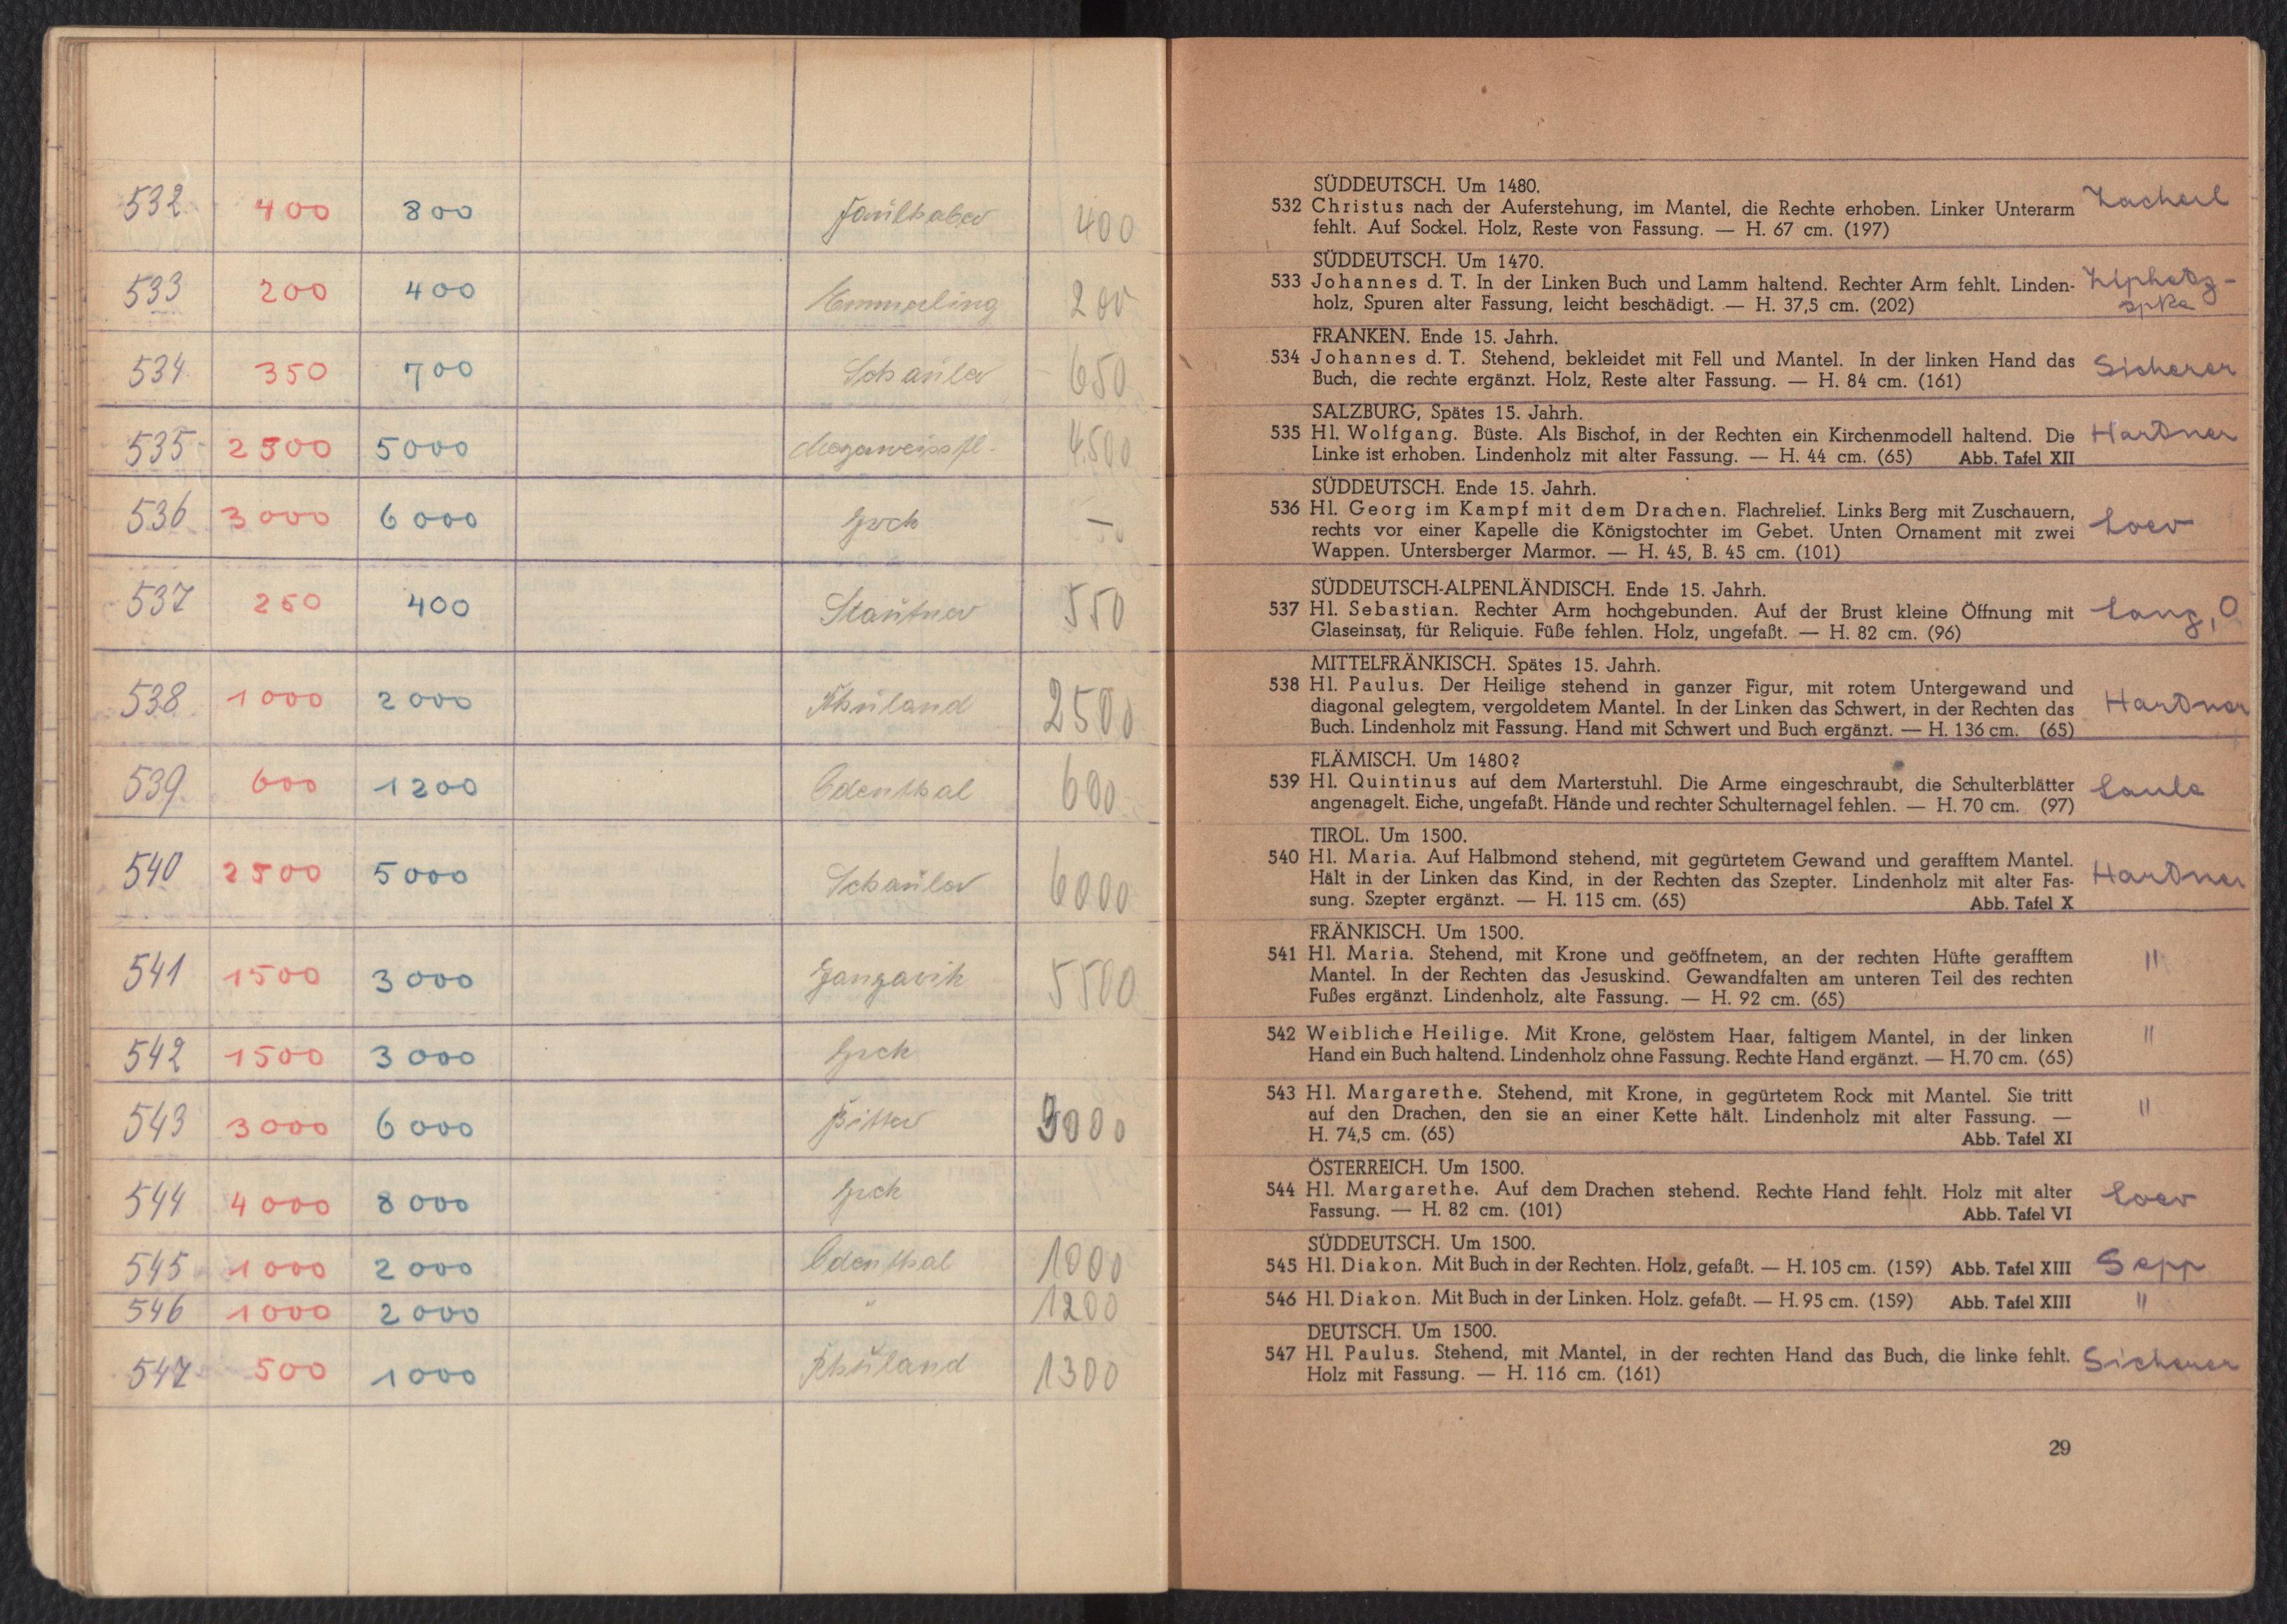 532 400 800 Faulhaber 400
533 200 400 Emmerling 200
534 350 700 Schauler 650
535 2500 5000 4500
536 3000 6000 –
537 250 400 Stautner 550
538 1000 2000 Ruland 2500
539 600 1200 Odenthal 600
540 2500 5000 Schauler 6000
541 1500 3000 5500
542 1500 3000
543 3000 6000 Ritter 3000
544 4000 8000
545 1000 2000 Odenthal 1000
546 1000 2000 " 1200
547 500 1000 Ruland 1300
SÜDDEUTSCH. Um 1480.
532 Christus nach der Auferstehung, im Mantel, die Rechte erhoben. Linker Unterarm Zacherl
fehlt. Auf Sockel. Holz, Reste von Fassung. — H. 67 cm. (197)
SÜDDEUTSCH. Um 1470.
533 Johannes d. T. In der Linken Buch und Lamm haltend. Rechter Arm fehlt. Linden-
holz, Spuren alter Fassung, leicht beschädigt. — H. 37,5 cm. (202)
FRANKEN. Ende 15. Jahrh.
534 Johannes d. T. Stehend, bekleidet mit Fell und Mantel. In der linken Hand das Sicherer
Buch, die rechte ergänzt. Holz, Reste alter Fassung. — H. 84 cm. (161)
SALZBURG, Spätes 15. Jahrh.
535 Hl. Wolfgang. Büste. Als Bischof, in der Rechten ein Kirchenmodell haltend. Die Hartner
Linke ist erhoben. Lindenholz mit alter Fassung. — H. 44 cm. (65) Abb. Tafel XII
SÜDDEUTSCH. Ende 15. Jahrh.
536 Hl. Georg im Kampf mit dem Drachen. Flachrelief. Links Berg mit Zuschauern,
rechts vor einer Kapelle die Königstochter im Gebet. Unten Ornament mit zwei Loew
Wappen. Untersberger Marmor. — H. 45, B. 45 cm. (101)
SÜDDEUTSCH-ALPENLÄNDISCH. Ende 15. Jahrh.
537 Hl. Sebastian. Rechter Arm hochgebunden. Auf der Brust kleine Öffnung mit Lang, O
Glaseinsatz, für Reliquie. Füße fehlen. Holz, ungefaßt. — H. 82 cm. (96)
MITTELFRÄNKISCH. Spätes 15. Jahrh.
538 Hl. Paulus. Der Heilige stehend in ganzer Figur, mit rotem Untergewand und
diagonal gelegtem, vergoldetem Mantel. In der Linken das Schwert, in der Rechten das Hartner
Buch. Lindenholz mit Fassung. Hand mit Schwert und Buch ergänzt. — H. 136 cm. (65)
FLÄMISCH. Um 1480?
539 Hl. Quintinus auf dem Marterstuhl. Die Arme eingeschraubt, die Schulterblätter Laule
angenagelt. Eiche, ungefaßt. Hände und rechter Schulternagel fehlen. — H. 70 cm. (97)
TIROL. Um 1500.
540 Hl. Maria. Auf Halbmond stehend, mit gegürtetem Gewand und gerafftem Mantel.
Hält in der Linken das Kind, in der Rechten das Szepter. Lindenholz mit alter Fas- Hartner
sung. Szepter ergänzt. — H. 115 cm. (65) Abb. Tafel X
FRÄNKISCH. Um 1500.
541 Hl. Maria. Stehend, mit Krone und geöffnetem, an der rechten Hüfte gerafftem "
Mantel. In der Rechten das Jesuskind. Gewandfalten am unteren Teil des rechten
Fußes ergänzt. Lindenholz, alte Fassung. — H. 92 cm. (65)
542 Weibliche Heilige. Mit Krone, gelöstem Haar, faltigem Mantel, in der linken "
Hand ein Buch haltend. Lindenholz ohne Fassung. Rechte Hand ergänzt. — H. 70 cm. (65)
543 Hl. Margarethe. Stehend, mit Krone, in gegürtetem Rock mit Mantel. Sie tritt
auf den Drachen, den sie an einer Kette hält. Lindenholz mit alter Fassung. — "
H. 74,5 cm. (65) Abb. Tafel XI
ÖSTERREICH. Um 1500.
544 Hl. Margarethe. Auf dem Drachen stehend. Rechte Hand fehlt. Holz mit alter Loew
Fassung. — H. 82 cm. (101) Abb. Tafel VI
SÜDDEUTSCH. Um 1500.
545 Hl. Diakon. Mit Buch in der Rechten. Holz, gefaßt. — H. 105 cm. (159) Abb. Tafel XIII Sepp
546 Hl. Diakon. Mit Buch in der Linken. Holz. gefaßt. — H. 95 cm. (159) Abb. Tafel XIII "
DEUTSCH. Um 1500.
547 Hl. Paulus. Stehend, mit Mantel, in der rechten Hand das Buch, die linke fehlt. Sicherer
Holz mit Fassung. — H. 116 cm. (161)
29